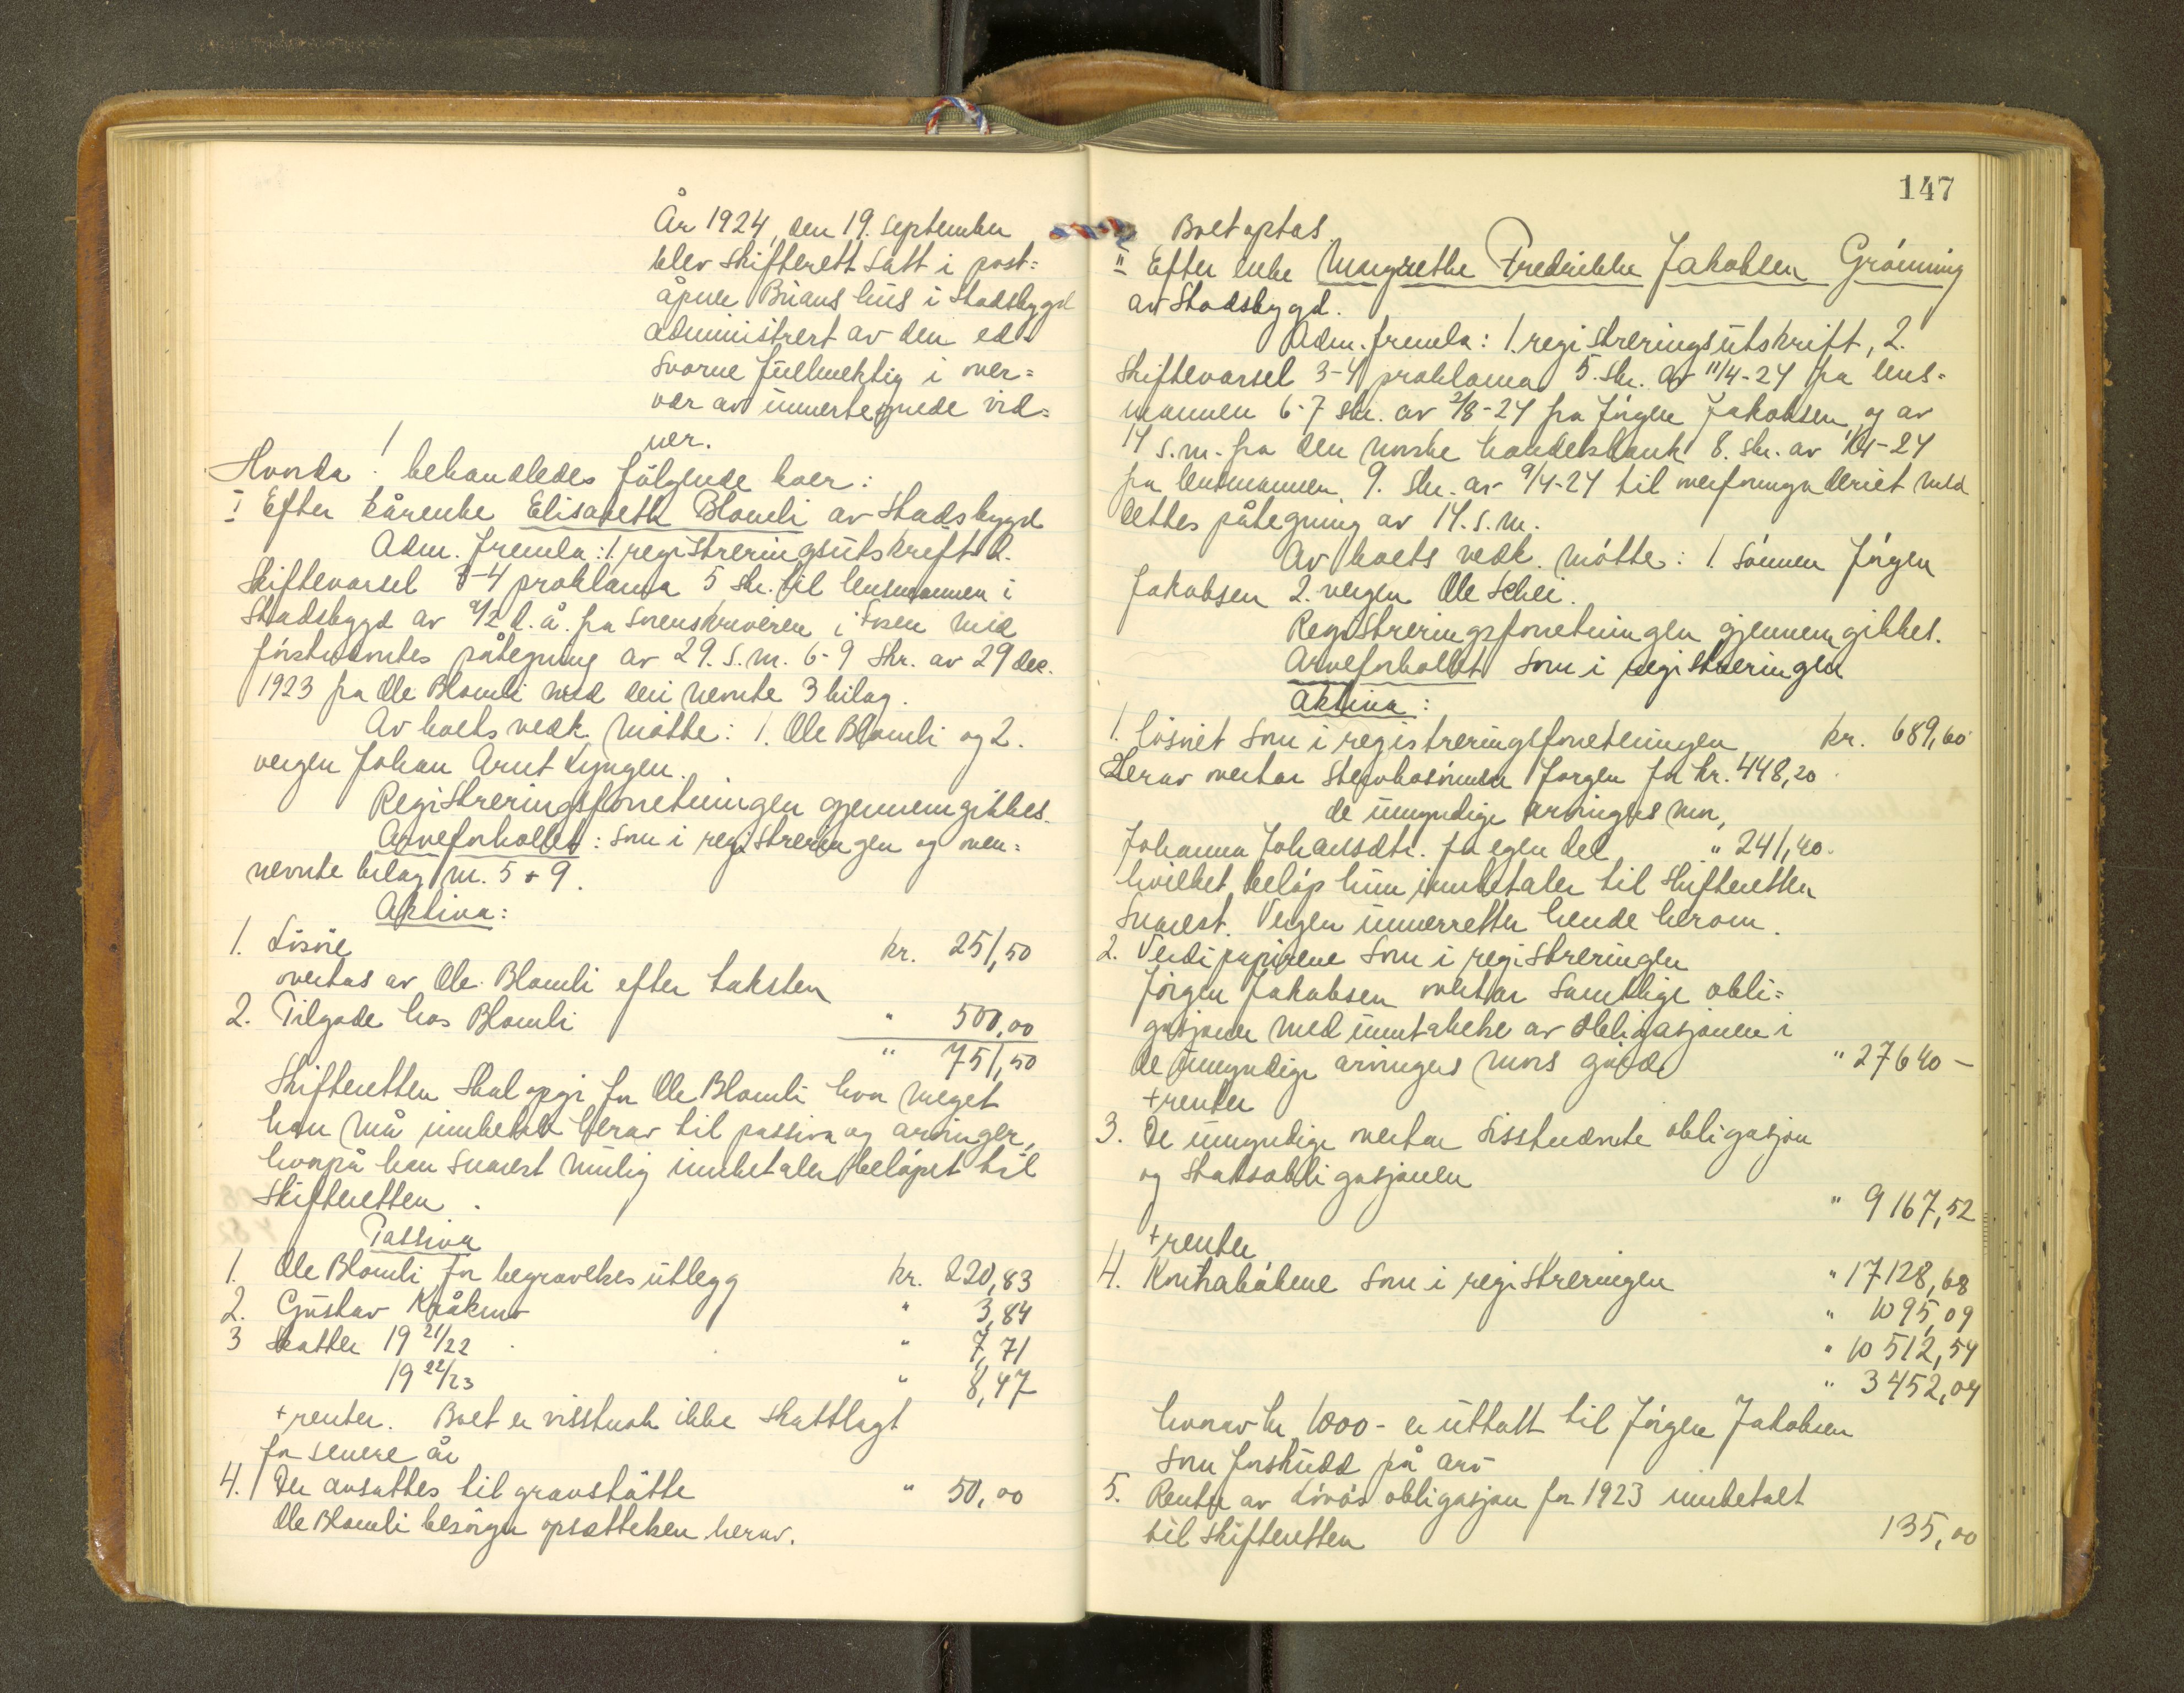 År 1924, den 19. september
blev skifterett satt i post=
åpner Brians hus i Stadsbygd
administrert av den ed=
svorne fullmektig i over=
vær av unnertegnede vid=
ner.
Hvorda!
behandledes følgende boer:
I Efter kårenke Elisabeth Blomli av Stadsbygd
Adm. fremla: 1. registreringsutskrift 2.
skiftevarsel 3-4 proklama 5 skr. til lensmannen i
Stadsbygd av 9/2 d.å. fra sorenskriveren i Fosen med
førstnevntes påtegning av 29. s.m. 6-9 skr. av 29 dec.
1923 fra Ole Blomli med deri nevnte 3 bilag.
Av boets vedk. møtte: 1. Ole Blomli og 2.
vergen Johan Arnt Lyngen.
Registreringsforretningen gjennemgikkes.
Arveforholdet: som i registreringen og oven=
nevnte bilag nr. 5 + 9.
Aktiva:
1. Løsøre kr. 251,50
overtas av Ole Blomli efter taksten
2. Tilgode hos Blomli " 500,00
" 751,50
Skifteretten skal opgi for Ole Blomli hvor meget
han må innbetale herav til passiva og arvinger,
hvorpå han snarest mulig innbetaler beløpet til
skifteretten.
Passiva
1. Ole Blomli for begravelses utlegg kr. 220,83
2. Gustav Kråkmo " 3,84
3 Skatter 19 21/22 " 7,71
19 22/23 " 8,47
+ renter. Boet er visstnok ikke skattlagt
for senere år
4. Der avsattes til gravstøtte " 50,00
Ole Blomli besørger opsettelsen herav.
147
Boet optas.
II Efter enke Margrethe Fredrikke Jakobsen Grønning
av Stadsbygd.
Adm. fremla: 1. registreringsutskrift, 2.
skiftevarsel 3-4 proklama 5. skr. av 11/4-24 fra lens=
mannen 6-7 skr. av 2/8-24 fra Jørgen Jakobsen og av
14 s.m. fra den norske handelsbank 8. skr. av -24
fra lensmannen. 9. skr. av 9/4-24 til overformynderiet med
dettes påtegning av 14. s.m.
Av boets vedk. møtte: 1. sønnen Jørgen
Jakobsen 2. vergen Ole Schei.
Registreringsforretningen gjennemgikkes.
Arveforholdet som i registreringen
Aktiva:
1. løsøret som i registreringsforretningen kr. 689,60
Herav overtar stervbosønnen Jørgen for kr. 448,20
de umyndige arvingers mor,
Johanna Johansdtr. for egen del " 241,40.
hvilket beløp hun innbetaler til skifteretten
snarest. Vergen unnerretter hende herom.
2. Verdipapirene som i registreringen
Jørgen Jakobsen overtar samtlige obli=
gasjoner med unntakelse av obligasjonen i
de umyndige arvingers mors gård " 27640 -
+ renter
3. De umyndige overtar sisstnevnte obligasjon
og statsobligasjonen " 9167,52
+ renter
4. Kontrabøkene som i registreringen " 17128,68
" 1095,09
" 10512,54
" 3452,04
hvorav kr 1000 - er uttatt til Jørgen Jakobsen
som forskudd på arv
5. Renter av Løvås obligasjon for 1923 innbetalt
til skifteretten 135,00